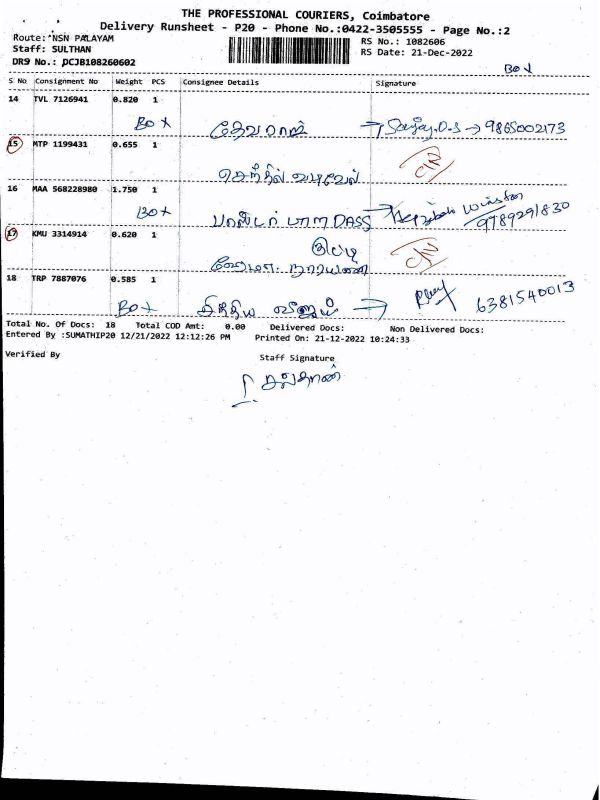 THE PROFESSIONAL COURIERS, Coimbatore
Delivery Runsheet - P20 - Phone No.:0422-3505555 - Page No.:2
Route: NSN PALAYAM
RS No.: 1082606
Staff: SULTHAN
RS Date: 21-Dec-2022
DRS No.: PCJB108260602
BOX
S No Consignment No Weight PCS Consignee Details Signature
14 TVL 7126941 0.820 1
BOX தேவராஜ் → Sanjay.D.S → 9865002173
15 MTP 1199431 0.655 1
செந்தில் வடிவேல்
16 MAA 568228980 1.750 1
BOX பாஸ்டர் பால DASS → Winston
9789291830
17 KMU 3314914 0.620 1
நாராயணன்
18 TRP 7887076 0.585 1
BOX நித்திய → 6381540013
Total No. Of Docs: 18 Total COD Amt: 0.00 Delivered Docs: Non Delivered Docs:
Entered By :SUMATHIP20 12/21/2022 12:12:26 PM Printed On: 21-12-2022 10:24:33
Verified By Staff Signature
சுல்தான்